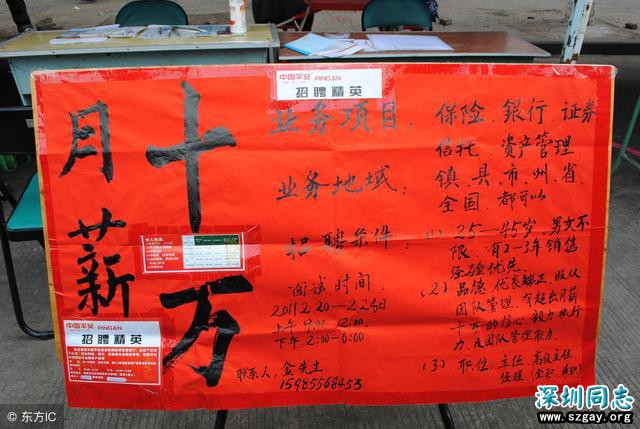 中国平安 PING AN
招聘精英
月薪
十万
业务项目：保险、银行、证券
信托、资产管理
业务地域：镇、县、市、州、省、
全国、都可以
招聘条件：(1) 25—45岁，男女不
限，有2—3年销售
经验优先
(2) 品德优良端正，服从
团队管理，有超出月薪
十万的信心，较高执行
力及团队管理能力
(3) 职位，主任，高级主任
经理（全职 兼职）
面试时间
2011.2.20—2.22日
上午9:00—12:00
下午2:00—6:00
联系人：金先生
15985568453
中国平安 PING AN
招聘精英
© 东方IC
深圳同志
www.szgay.org